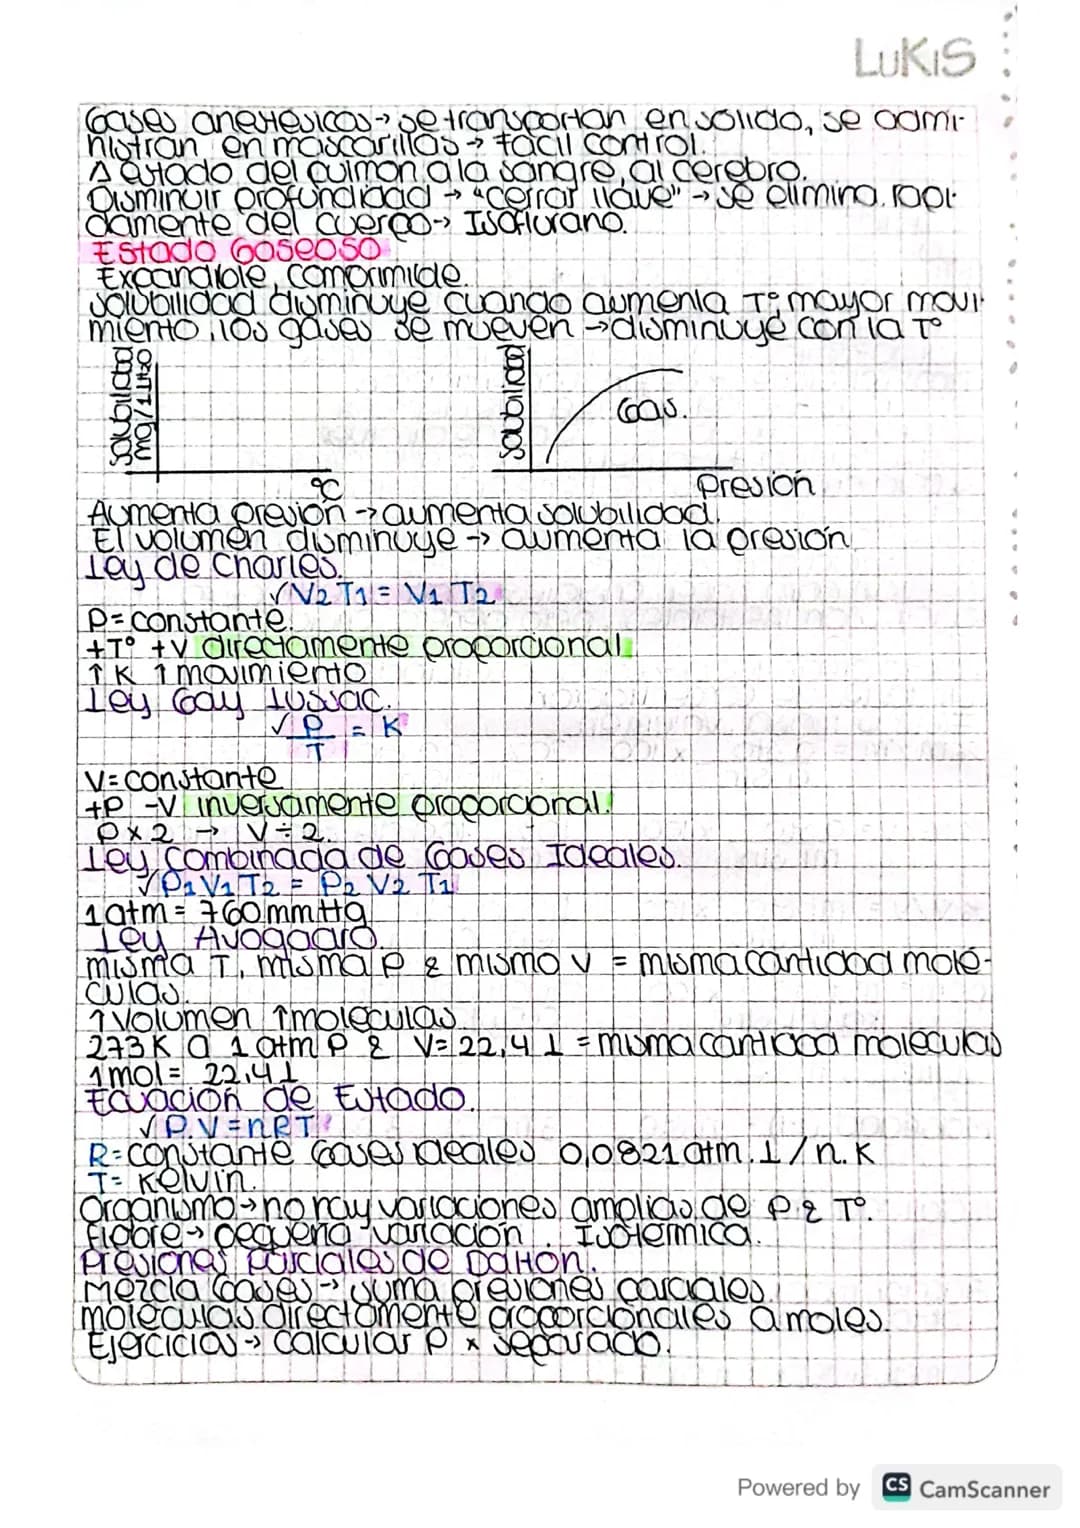 LUKIS
Gases anestésicos → se transportan en sólido, se admi-
nistran en mascarillas → fácil control.
Δ estado del pulmon a la sangre, al cerebro.
Disminuir profundidad → "cerrar llave" → se elimina rapi-
damente del cuerpo → Isoflurano.
Estado Gaseoso
Expandible, comprimible.
Solubilidad disminuye cuando aumenta T°, mayor movi-
miento, los gases se mueven → disminuye con la T°
Solubilidad
mg/litro
°C
Solubilidad
Gas.
Presión
Aumenta presión → aumenta solubilidad.
El volumen disminuye → aumenta la presión
Ley de Charles.
√ V2 T1 = V1 T2
P= constante.
+T° +V directamente proporcional
↑K ↑movimiento
Ley Gay Lussac.
√ P/T = K
V= constante
+P -V inversamente proporcional.
P x 2 → V ÷ 2.
Ley Combinada de Gases Ideales.
√ P1 V1 T2 = P2 V2 T1
1 atm = 760 mmHg
Ley Avogadro.
misma T, misma P & mismo V = misma cantidad molé-
culas.
↑Volumen ↑moleculas.
273K a 1 atm P & V= 22,4 L = misma cantidad moleculas
1 mol = 22,4 L
Ecuación de Estado.
√ P.V = nRT
R= constante Gases ideales 0,0821 atm.L/n.K
T= Kelvin.
Organismo → no hay variaciones amplias de P & T°.
Fiebre → pequeña variación. Isotermica.
Presiones Parciales de Dalton.
Mezcla Gases → suma presiones parciales.
moleculas directamente proporcionales a moles.
Ejercicios → calcular P x separado.
Powered by CS CamScanner